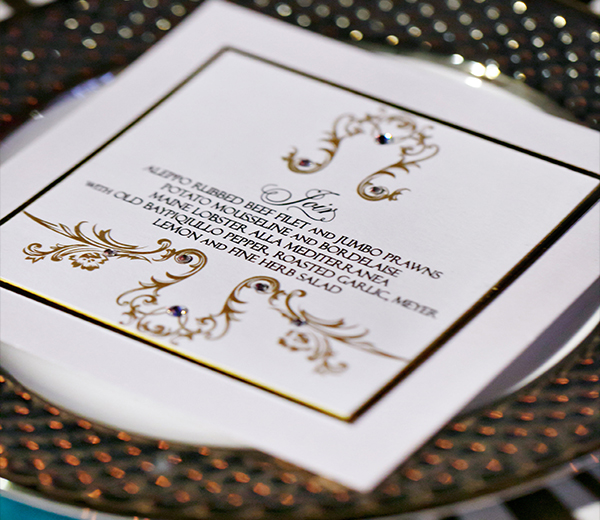 Jois
ALEPPO RUBBED BEEF FILET AND JUMBO PRAWNS
POTATO MOUSSELINE AND BORDELAISE
MAINE LOBSTER ALLA MEDITERRANEA
WITH OLD BAYPIQUILLO PEPPER, ROASTED GARLIC, MEYER
LEMON AND FINE HERB SALAD